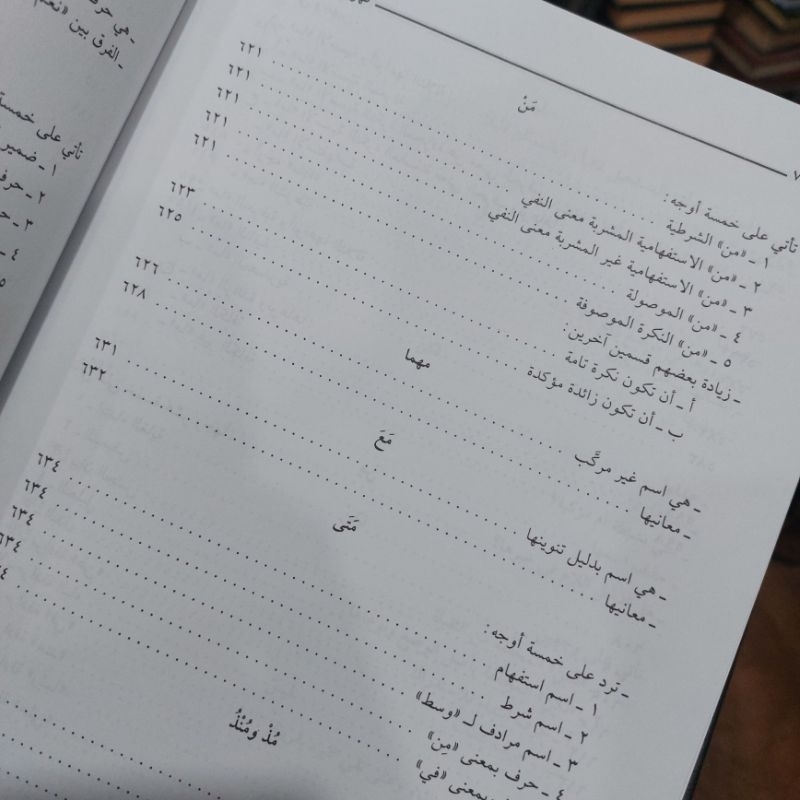 مَنْ
تأتي على خمسة أوجه:
١ ـ «من» الشرطية ٦٢١
٢ ـ «من» الاستفهامية المشربة معنى النفي ٦٢١
٣ ـ «من» الاستفهامية غير المشربة معنى النفي ٦٢١
٤ ـ «من» الموصولة ٦٢١
٥ ـ «من» النكرة الموصوفة ٦٢١
ـ زيادة بعضهم قسمين آخرين:
أ ـ أن تكون نكرة تامة ٦٢٣
ب ـ أن تكون زائدة مؤكدة ٦٢٥
مهما
ـ هي اسم غير مركَّب ٦٢٦
ـ معانيها ٦٢٨
مَعَ
ـ هي اسم بدليل تنوينها ٦٣١
ـ معانيها ٦٣٢
مَتَى
ـ ترد على خمسة أوجه:
١ ـ اسم استفهام ٦٣٤
٢ ـ اسم شرط ٦٣٤
٣ ـ اسم مرادف لـ «وسط» ٦٣٤
٤ ـ حرف بمعنى «مِن»
بمعنى «في»
مُذْ ومُنْذُ
ـ هي
ـ الفرق بين «نعم
تأتي على خمسة
١ ـ ضمير
٢ ـ حرف
٣ ـ
٤ ـ